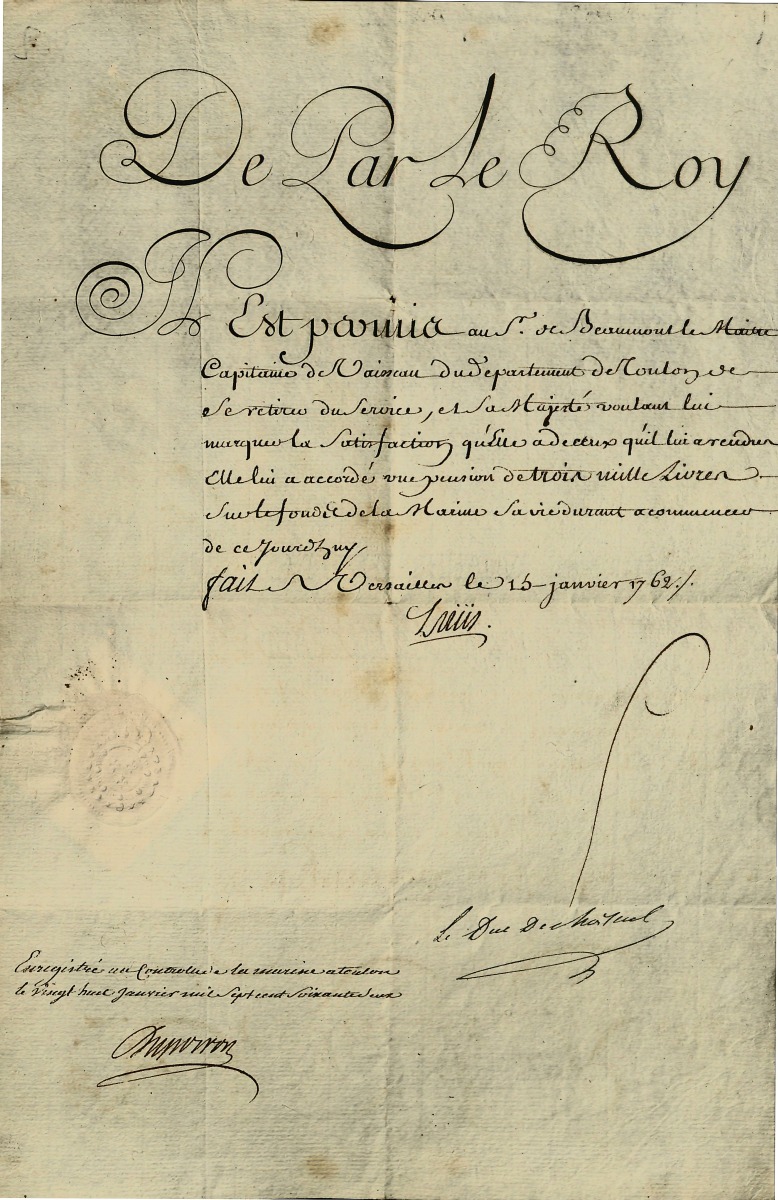 De Par Le Roy
Il Est permis au Sr. de Beaumont le Maitre
Capitaine de Vaisseau du département de Toulon de
Se retirer du Service, et Sa Majesté voulant lui
marquer la Satisfaction qu'Elle a de ceux qu'il lui a rendus
Elle lui a accordé une pension de trois mille Livres
Sur le fonds de la Marine Sa vie durant a commencer
de ce Jourd'huy,
fait à Versailles le 15 janvier 1762./.
Louis.
Le Duc De choiseul
Enregistré au Controlle de la marine a toulon
le vingt huit Janvier mil Sept cent Soixante deux